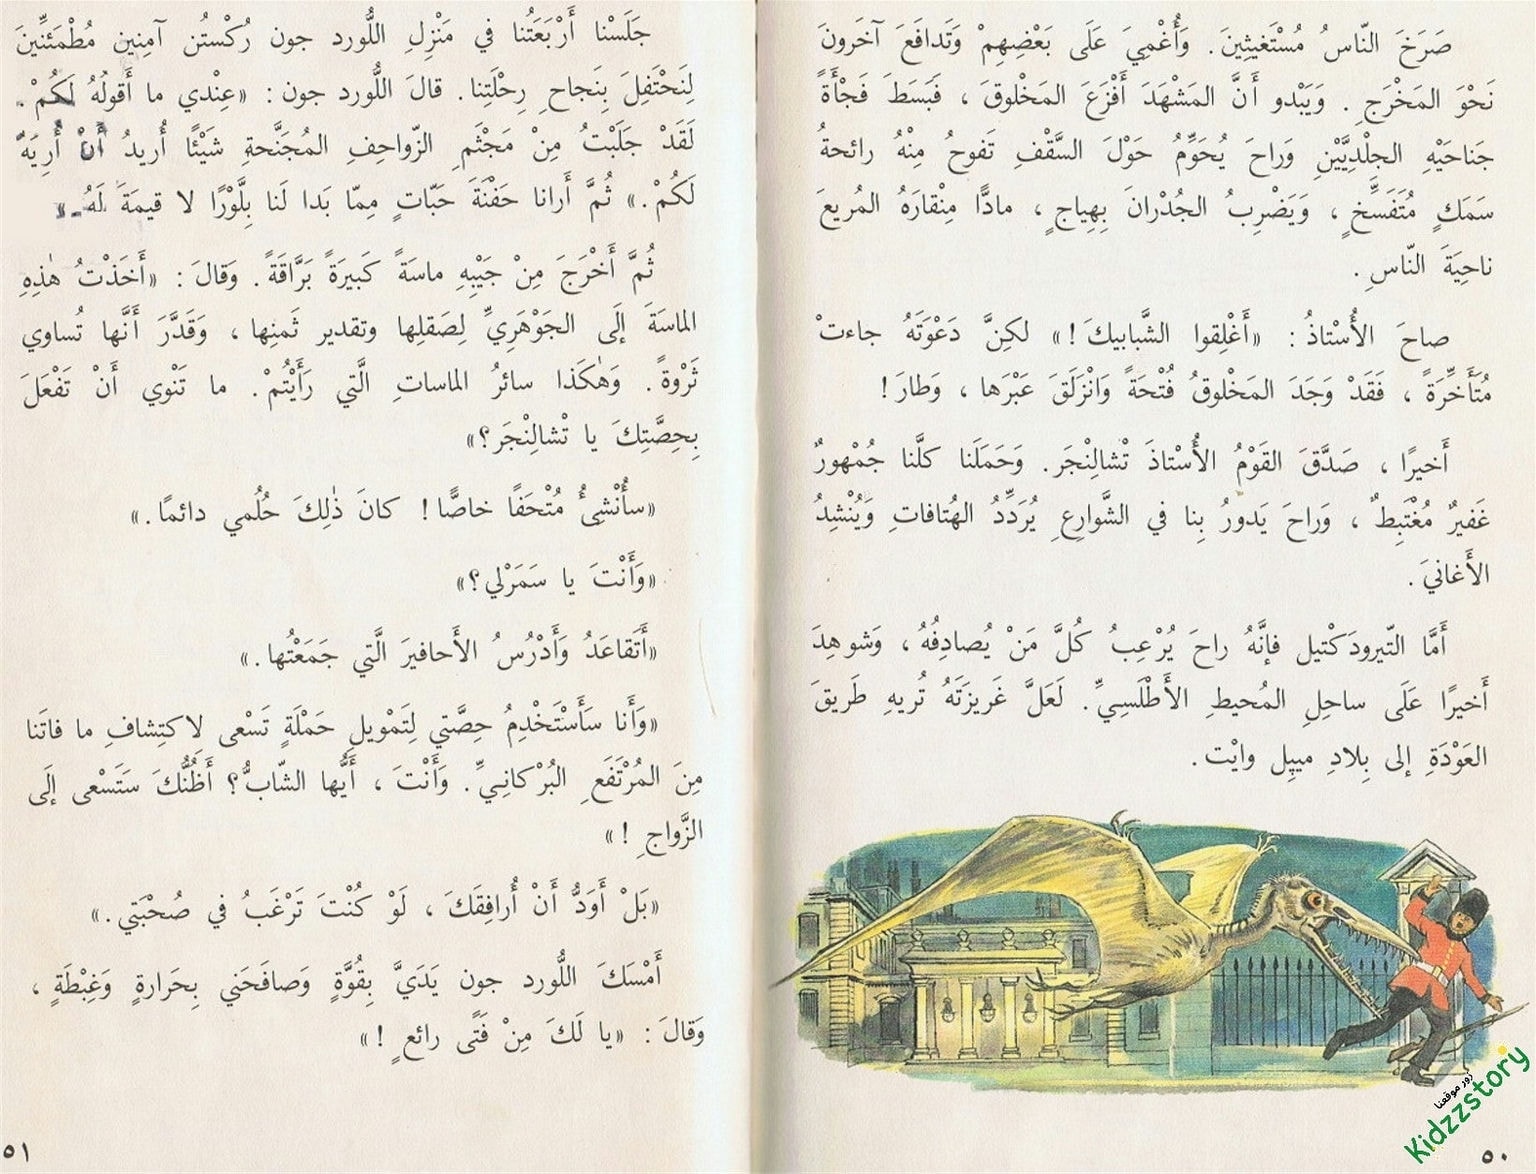 صَرَخَ النّاسُ مُسْتَغيثِينَ. وَأُغْمِيَ عَلَى بَعْضِهِمْ وَتَدافَعَ آخَرونَ
نَحْوَ المَخْرَجِ. وَيَبْدو أَنَّ المَشْهَدَ أَفْزَعَ المَخْلوقَ، فَبَسَطَ فَجْأَةً
جَناحَيْهِ الجِلْدِيَّيْنِ وَراحَ يُحَوِّمُ حَوْلَ السَّقْفِ تَفوحُ مِنْهُ رائحةُ
سَمَكٍ مُتَفَسِّخٍ، وَيَضْرِبُ الجُدْرانَ بِهِياجٍ، مادًّا مِنْقارَهُ المُريعَ
ناحِيَةَ النّاسِ.
صاحَ الأُسْتاذُ: «أَغْلِقوا الشَّبابيكَ!» لكِنَّ دَعْوَتَهُ جاءتْ
مُتَأَخِّرَةً، فَقَدْ وَجَدَ المَخْلوقُ فُتْحَةً وَانْزَلَقَ عَبْرَها، وَطارَ!
أَخيرًا، صَدَّقَ القَوْمُ الأُسْتاذَ تْشالِنْجَر. وَحَمَلَنا كلَّنا جُمْهورٌ
غَفيرٌ مُغْتَبِطٌ، وَراحَ يَدورُ بِنا في الشَّوارِعِ يُرَدِّدُ الهُتافاتِ وَيُنْشِدُ
الأَغانيَ.
أَمَّا التّيرودَكْتيل فإنَّهُ راحَ يُرْعِبُ كُلَّ مَنْ يُصادِفُهُ، وَشوهِدَ
أَخيرًا عَلَى ساحِلِ المُحيطِ الأَطْلَسِيِّ. لَعَلَّ غَريزَتَهُ تُريهِ طَريقَ
العَوْدَةِ إلى بِلادِ مييِل وايْت.
زور موقعنا
Kidzzstory
٥٠
جَلَسْنا أَرْبَعَتُنا في مَنْزِلِ اللُّورد جون رُكْستُن آمِنِين مُطْمَئنِّينَ
لِنَحْتَفِلَ بِنَجاحِ رِحْلَتِنا. قالَ اللُّورد جون: «عِنْدي ما أَقولُهُ لَكُمْ.
لَقَدْ جَلَبْتُ مِنْ مَجْثَمِ الزّواحِفِ المُجَنَّحةِ شَيْئًا أُريدُ أَنْ أُرِيَهُ
لَكُمْ.» ثُمَّ أَرانا حَفْنَةَ حَبّاتٍ مِمّا بَدا لَنا بِلَّوْرًا لا قيمَةَ لَهُ.
ثُمَّ أَخْرَجَ مِنْ جَيْبِهِ ماسَةً كَبيرَةً بَرَّاقَةً. وَقالَ: «أَخَذْتُ هٰذِهِ
الماسَةَ إلَى الجَوْهَرِيِّ لِصَقلِها وتقدير ثَمنِها، وَقَدَّرَ أَنَّها تُساوي
ثَرْوةً. وَهٰكَذا سائرُ الماساتِ الَّتي رَأَيْتُمْ. ما تَنْوي أَنْ تَفْعَلَ
بِحِصَّتِكَ يا تْشالِنْجَر؟»
«سأُنْشِئُ مُتْحَفًا خاصًّا! كانَ ذٰلِكَ حُلُمي دائمًا.»
«وَأَنْتَ يا سَمَرْلي؟»
«أَتَقاعَدُ وَأَدْرُسُ الأَحافيرَ الَّتي جَمَعْتُها.»
«وَأَنا سَأَسْتَخْدِمُ حِصَّتي لِتَمْويلِ حَمْلَةٍ تَسْعى لاكتِشافِ ما فاتَنا
مِنَ المُرْتَفَعِ البُرْكانِيِّ. وَأَنْتَ، أَيُّها الشّابُّ؟ أَظُنُّكَ سَتَسْعى إلَى
الزَّواجِ!»
«بَلْ أَوَدُّ أَنْ أُرافِقَكَ، لَوْ كُنْتَ تَرْغَبُ في صُحْبَتي.»
أَمْسَكَ اللُّورد جون يَدَيَّ بِقُوَّةٍ وَصافَحَني بِحَرارةٍ وَغِبْطَةٍ،
وَقالَ: «يا لَكَ مِنْ فَتًى رائعٍ!»
٥١